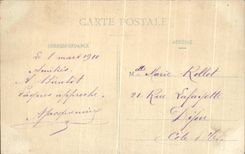 CARTE POSTALE
CORRESPONDANCE
ADRESSE
Le 1 mars 1910
Amitiés
A bientôt
Pâques approche
Mlle Marie Rollet
21 Rue Lafayette
Dijon
Côte d'Or